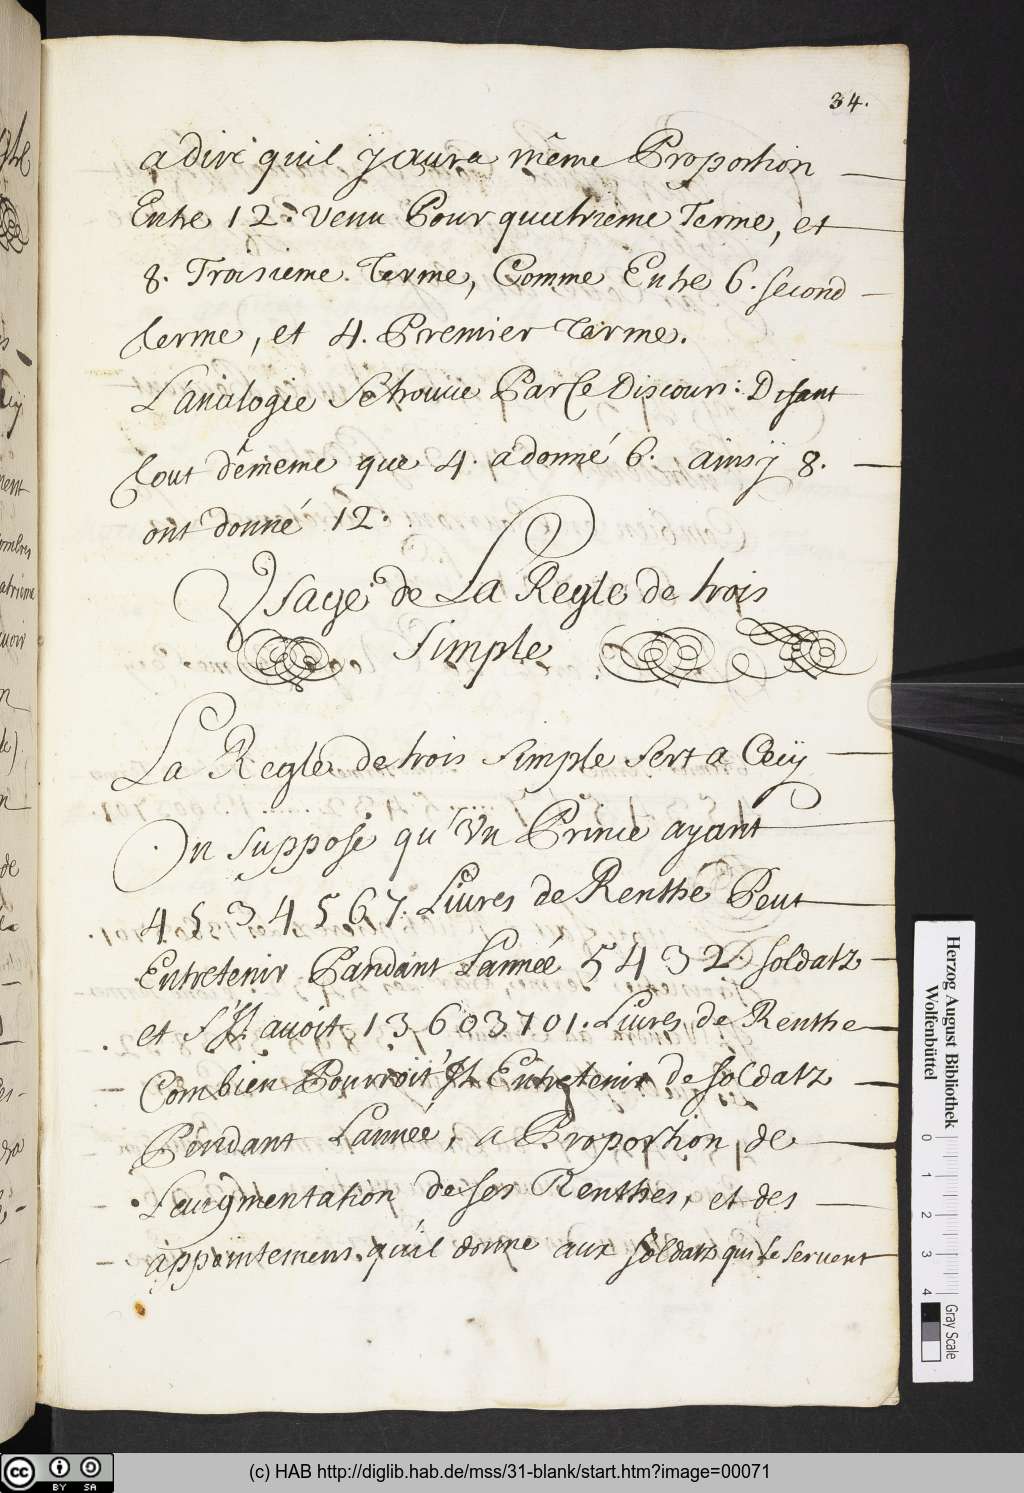 34.
a dire quil y aura même Proportion
Entre 12. venu Pour quatrieme Terme, et
8. Troisieme. Terme, Comme Entre 6. second
terme, et 4. Premier Terme.
L'analogie Se trouve Par Ce Discours: Disant
tout dêmeme que 4. a donné 6. ainsÿ 8.
ont donné 12.
Vsage de La Regle de trois
Simple
La Regle de trois Simple Sert a Cecÿ
On suppose qu'Vn Prince ayant
4534567. Livres de Renthe Peut
Entretenir Pandant Lannée 5432. soldatz
et S'Jl avoit 13603701. Livres de Renthe
Combien Pourroit Jl Entretenir de soldatz
Pendant Lannée, a Proportion de
Laugmentation de ses Renthes, et des
appointemens quil donne aux soldatz qui Le servent
Herzog August Bibliothek
Wolfenbüttel
0 1 2 3 4
Gray Scale
(c) HAB http://diglib.hab.de/mss/31-blank/start.htm?image=00071
cc BY SA